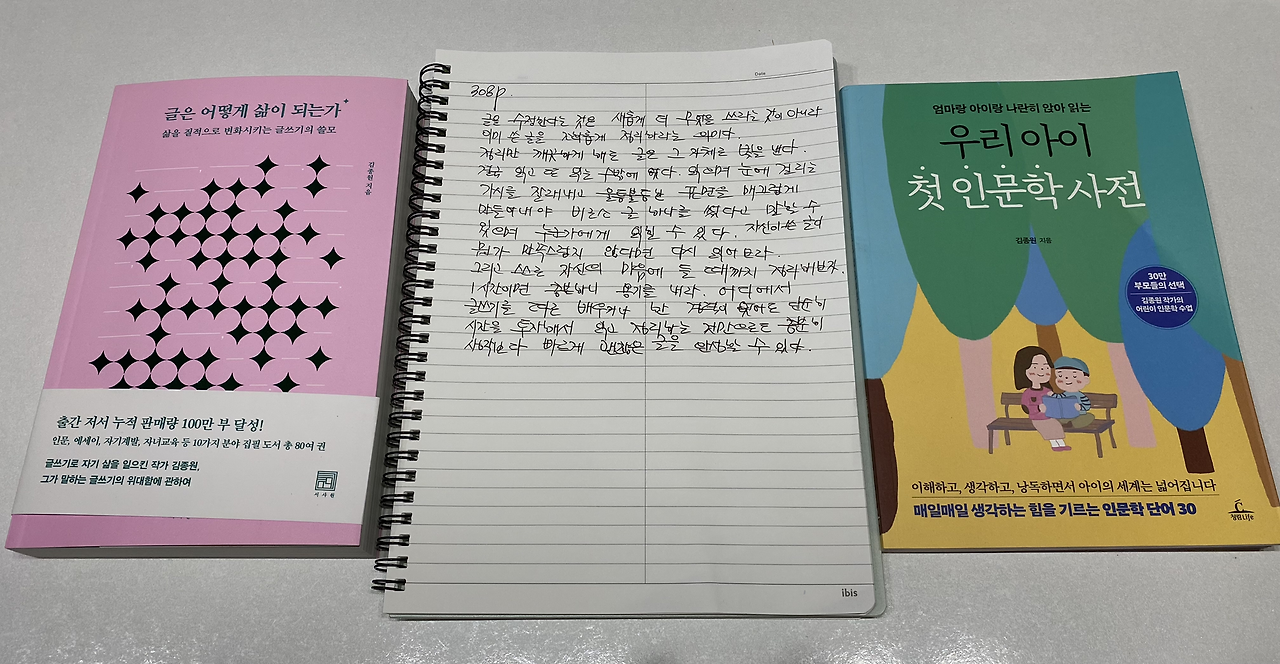 글은 어떻게 삶이 되는가
삶을 질적으로 변화시키는 글쓰기의 쓸모
김종원 지음
출간 저서 누적 판매량 100만 부 달성!
인문, 에세이, 자기계발, 자녀교육 등 10가지 분야 집필 도서 총 80여 권
글쓰기로 자기 삶을 일으킨 작가 김종원,
그가 말하는 글쓰기의 위대함에 관하여
서사원
Date
308p.
글을 수정한다는 것은 새롭게 더 무언가를 쓰라는 것이 아니라
이미 쓴 글을 조화롭게 정리하라는 의미다.
정리만 깨끗하게 해도 글은 그 자체로 빛을 낸다.
직접 읽고 또 읽는 수밖에 없다. 읽으며 눈에 걸리는
가시를 잘라내고 울퉁불퉁한 표면을 매끄럽게
만들어내야 비로소 글 하나를 썼다고 말할 수
있으며 누군가에게 읽힐 수 있다. 자신이 쓴 글이
뭔가 만족스럽지 않다면 다시 읽어보라.
그리고 스스로 자신의 마음에 들 때까지 정리해보자.
1시간이면 충분하니 용기를 내라. 어디에서
글쓰기를 따로 배우거나 난 경력이 없어도 단순히
시간을 투자해서 읽고 정리하는 것만으로도 충분히
생각보다 빠르게 괜찮은 글을 완성할 수 있다.
ibis
엄마랑 아이랑 나란히 앉아 읽는
우리 아이
첫 인문학 사전
김종원 지음
30만
부모들의 선택
김종원 작가의
어린이 인문학 수업
이해하고, 생각하고, 낭독하면서 아이의 세계는 넓어집니다
매일매일 생각하는 힘을 기르는 인문학 단어 30
청림Life